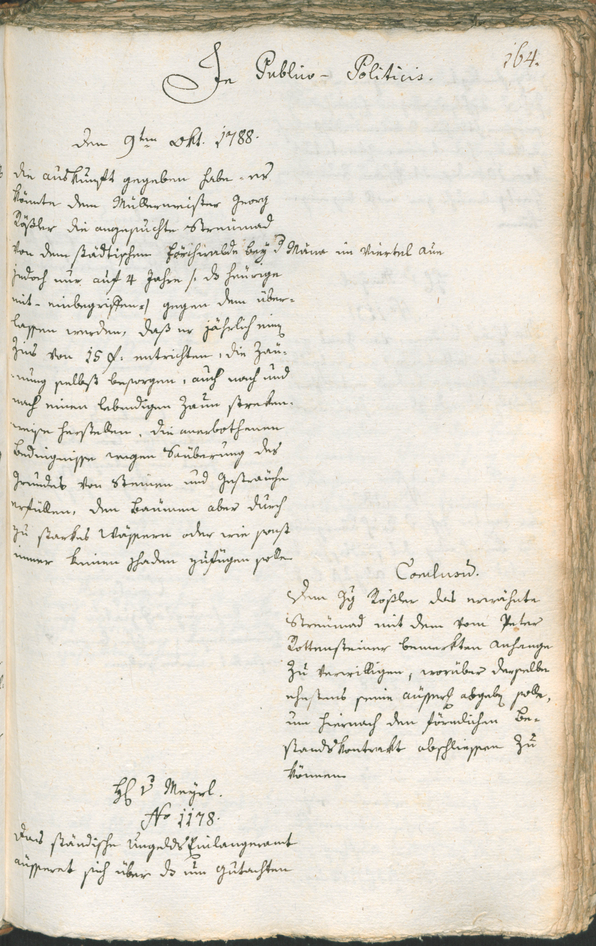 164.
In Publico-Politicis.
den 9ten Okt. 1788.
die auskunft gegeben habe, er
könnte dem Müllermeister Georg
Rößler die angesuchte Streumad
von dem städtischen Förchwalde bey d Mäna im Viertel Aue
jedoch nur auf 4 Jahre /: ds heurige
mit-einbegriffen :/ gegen dem über-
lassen werden, daß er jährlich einen
Zins von 15 f. entrichten, die Zäu-
nung selbst besorgen, auch nach und
nach einen lebendigen Zaun strecken-
weise herstellen, die anerbothenen
Bedingnisse wegen Säuberung des
Grundes von Steinen und Gesträuche
erfüllen, den Bäumen aber durch
zu starkes Wässern oder wie sonst
immer keinen schaden zufügen solle.
Conclusum.
Dem Gg Rößler das erwähnte
Streumad mit dem vom Peter
Rottensteiner bemerkten Anhange
zu verwilligen, worüber derselbe
ehestens seine äusserg abgeben solle,
um hiernach den förmlichen Be-
standskontrakt abschliessen zu
können.
H v Mayrl.
No 1178.
Das ständische Ungelds Einlangeramt
äussert sich über ds um Gutachten